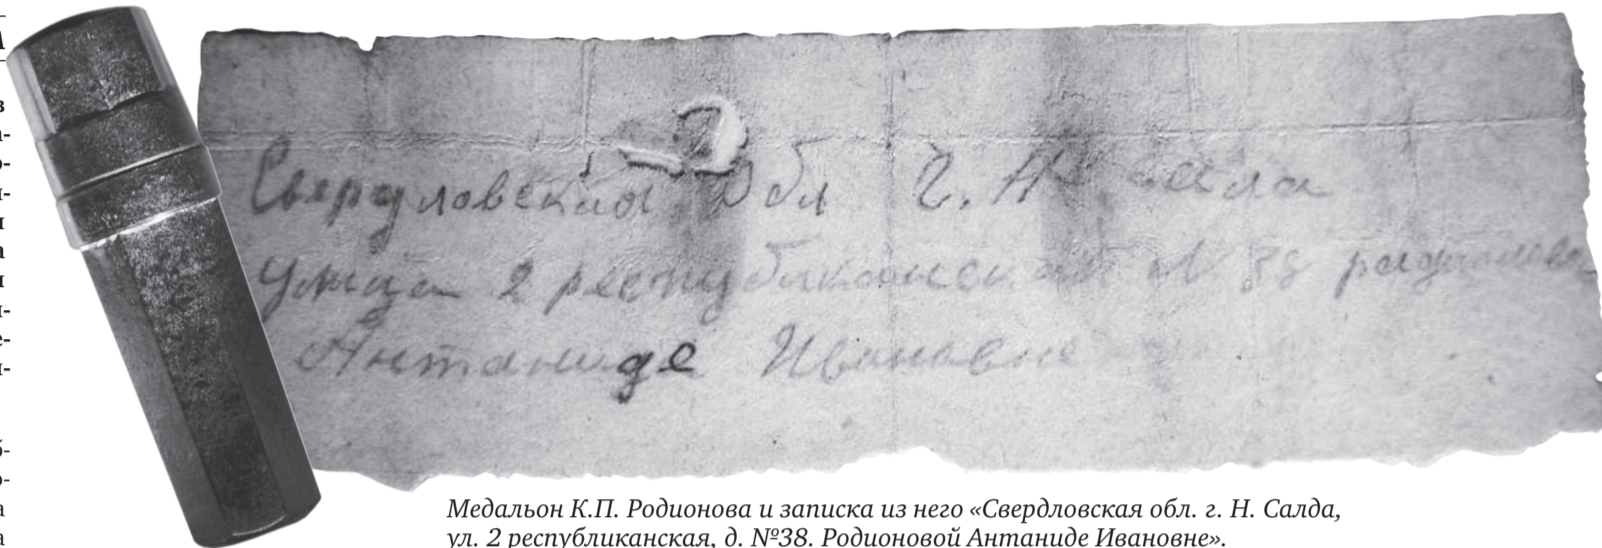 Свердловская Обл г. Н Салда
Улица 2 республиканская № 38 родионово
Антаниде Ивановне
Медальон К.П. Родионова и записка из него «Свердловская обл. г. Н. Салда,
ул. 2 республиканская, д. №38. Родионовой Антаниде Ивановне».